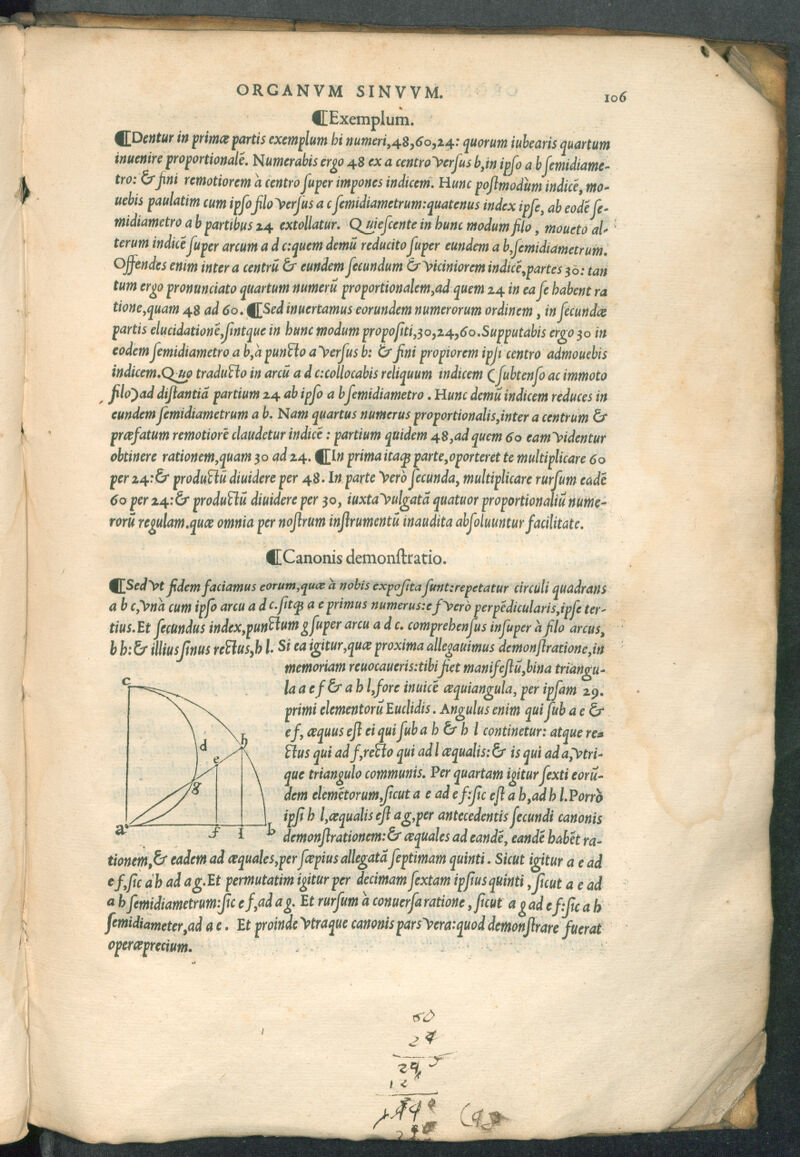 ORGANVM SINVVM.
106
¶Exemplum.
¶Dentur in primæ partis exemplum hi numeri,48,60,24: quorum iubearis quartum
inuenire proportionalē. Numerabis ergo 48 ex a centro verſus b,in ipſo a b ſemidiame-
tro: & fini remotiorem à centro ſuper impones indicem. Hunc poſtmodùm indicē, mo-
uebis paulatim cum ipſo filo verſus a c ſemidiametrum:quatenus index ipſe, ab eodē ſe-
midiametro a b partibus 24 extollatur. Quieſcente in hunc modum filo, moueto al-
terum indicē ſuper arcum a d c:quem demū reducito ſuper eundem a b,ſemidiametrum.
Offendes enim inter a centrū & eundem ſecundum & viciniorem indicē,partes 30: tan
tum ergo pronunciato quartum numerū proportionalem,ad quem 24 in ea ſe habent ra
tione,quam 48 ad 60. ¶Sed inuertamus eorundem numerorum ordinem, in ſecundæ
partis elucidationē,ſintque in hunc modum propoſiti,30,24,60.Supputabis ergo 30 in
eodem ſemidiametro a b,à puncto a verſus b: & fini propiorem ipſi centro admouebis
indicem.Quo traducto in arcū a d c:collocabis reliquum indicem (ſubtenſo ac immoto
filo)ad diſtantiā partium 24 ab ipſo a b ſemidiametro. Hunc demū indicem reduces in
eundem ſemidiametrum a b. Nam quartus numerus proportionalis,inter a centrum &
præfatum remotiorē claudetur indicē: partium quidem 48,ad quem 60 eam videntur
obtinere rationem,quam 30 ad 24. ¶In prima itaq; parte,oporteret te multiplicare 60
per 24:& productū diuidere per 48. In parte verò ſecunda, multiplicare rurſum eadē
60 per 24:& productū diuidere per 30, iuxta vulgatā quatuor proportionaliū nume-
rorū regulam.quæ omnia per noſtrum inſtrumentū inaudita abſoluuntur facilitate.
¶Canonis demonſtratio.
¶Sed vt fidem faciamus eorum,quæ à nobis expoſita ſunt:repetatur circuli quadrans
a b c,vnà cum ipſo arcu a d c.ſitq; a e primus numerus:e f verò perpēdicularis,ipſe ter-
tius.Et ſecundus index,punctum g ſuper arcu a d c. comprehenſus inſuper à filo arcus,
b h:& illius ſinus rectus,h l. Si ea igitur,quæ proxima allegauimus demonſtratione,in
memoriam reuocaueris:tibi fiet manifeſtū,bina triangu-
la a e f & a h l,fore inuicē æquiangula, per ipſam 29.
primi elementorū Euclidis. Angulus enim qui ſub a e &
e f, æquus eſt ei qui ſub a h & h l continetur: atque re-
ctus qui ad f,recto qui ad l æqualis:& is qui ad a,vtri-
que triangulo communis. Per quartam igitur ſexti eorū-
dem elemētorum,ſicut a e ad e f:ſic eſt a h,ad h l.Porrò
ipſi h l,æqualis eſt a g,per antecedentis ſecundi canonis
demonſtrationem:& æquales ad eandē, eandē habēt ra-
tionem,& eadem ad æquales,per ſæpius allegatā ſeptimam quinti. Sicut igitur a e ad
e f,ſic ah ad a g.Et permutatim igitur per decimam ſextam ipſius quinti, ſicut a e ad
a h ſemidiametrum:ſic e f,ad a g. Et rurſum à conuerſa ratione, ſicut a g ad e f:ſic a h
ſemidiameter,ad a e. Et proinde vtraque canonis pars vera:quod demonſtrare fuerat
operæprecium.
c
d
h
e
g
a
f
l
b
60
24